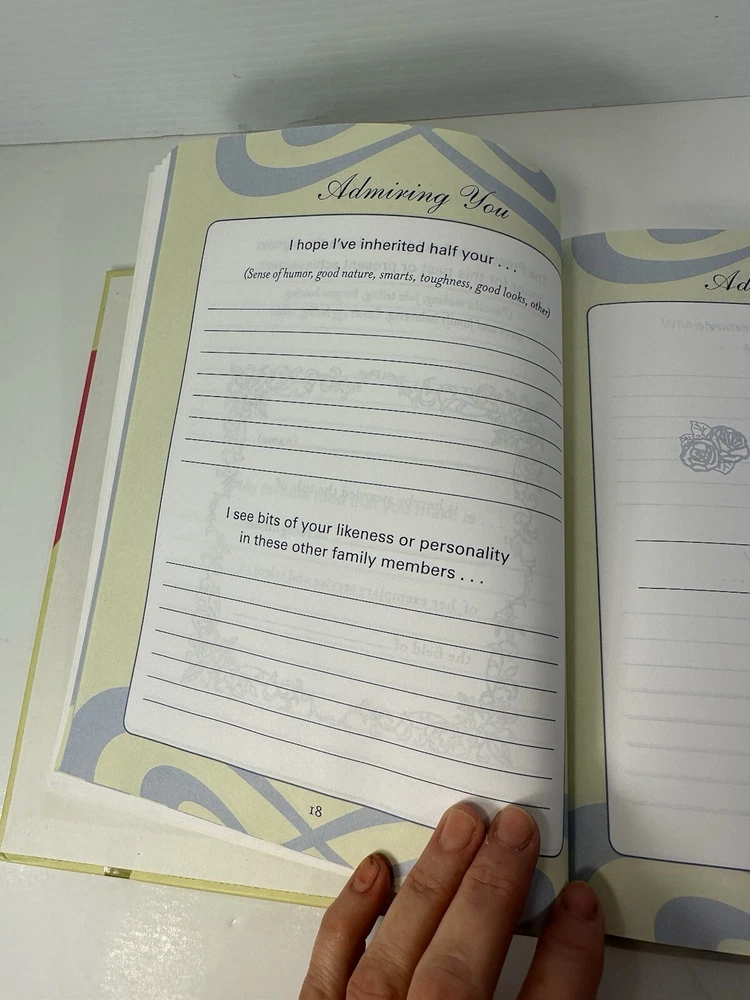 Admiring You
I hope I've inherited half your . . .
(Sense of humor, good nature, smarts, toughness, good looks, other)
I see bits of your likeness or personality
in these other family members . . .
18
Ad